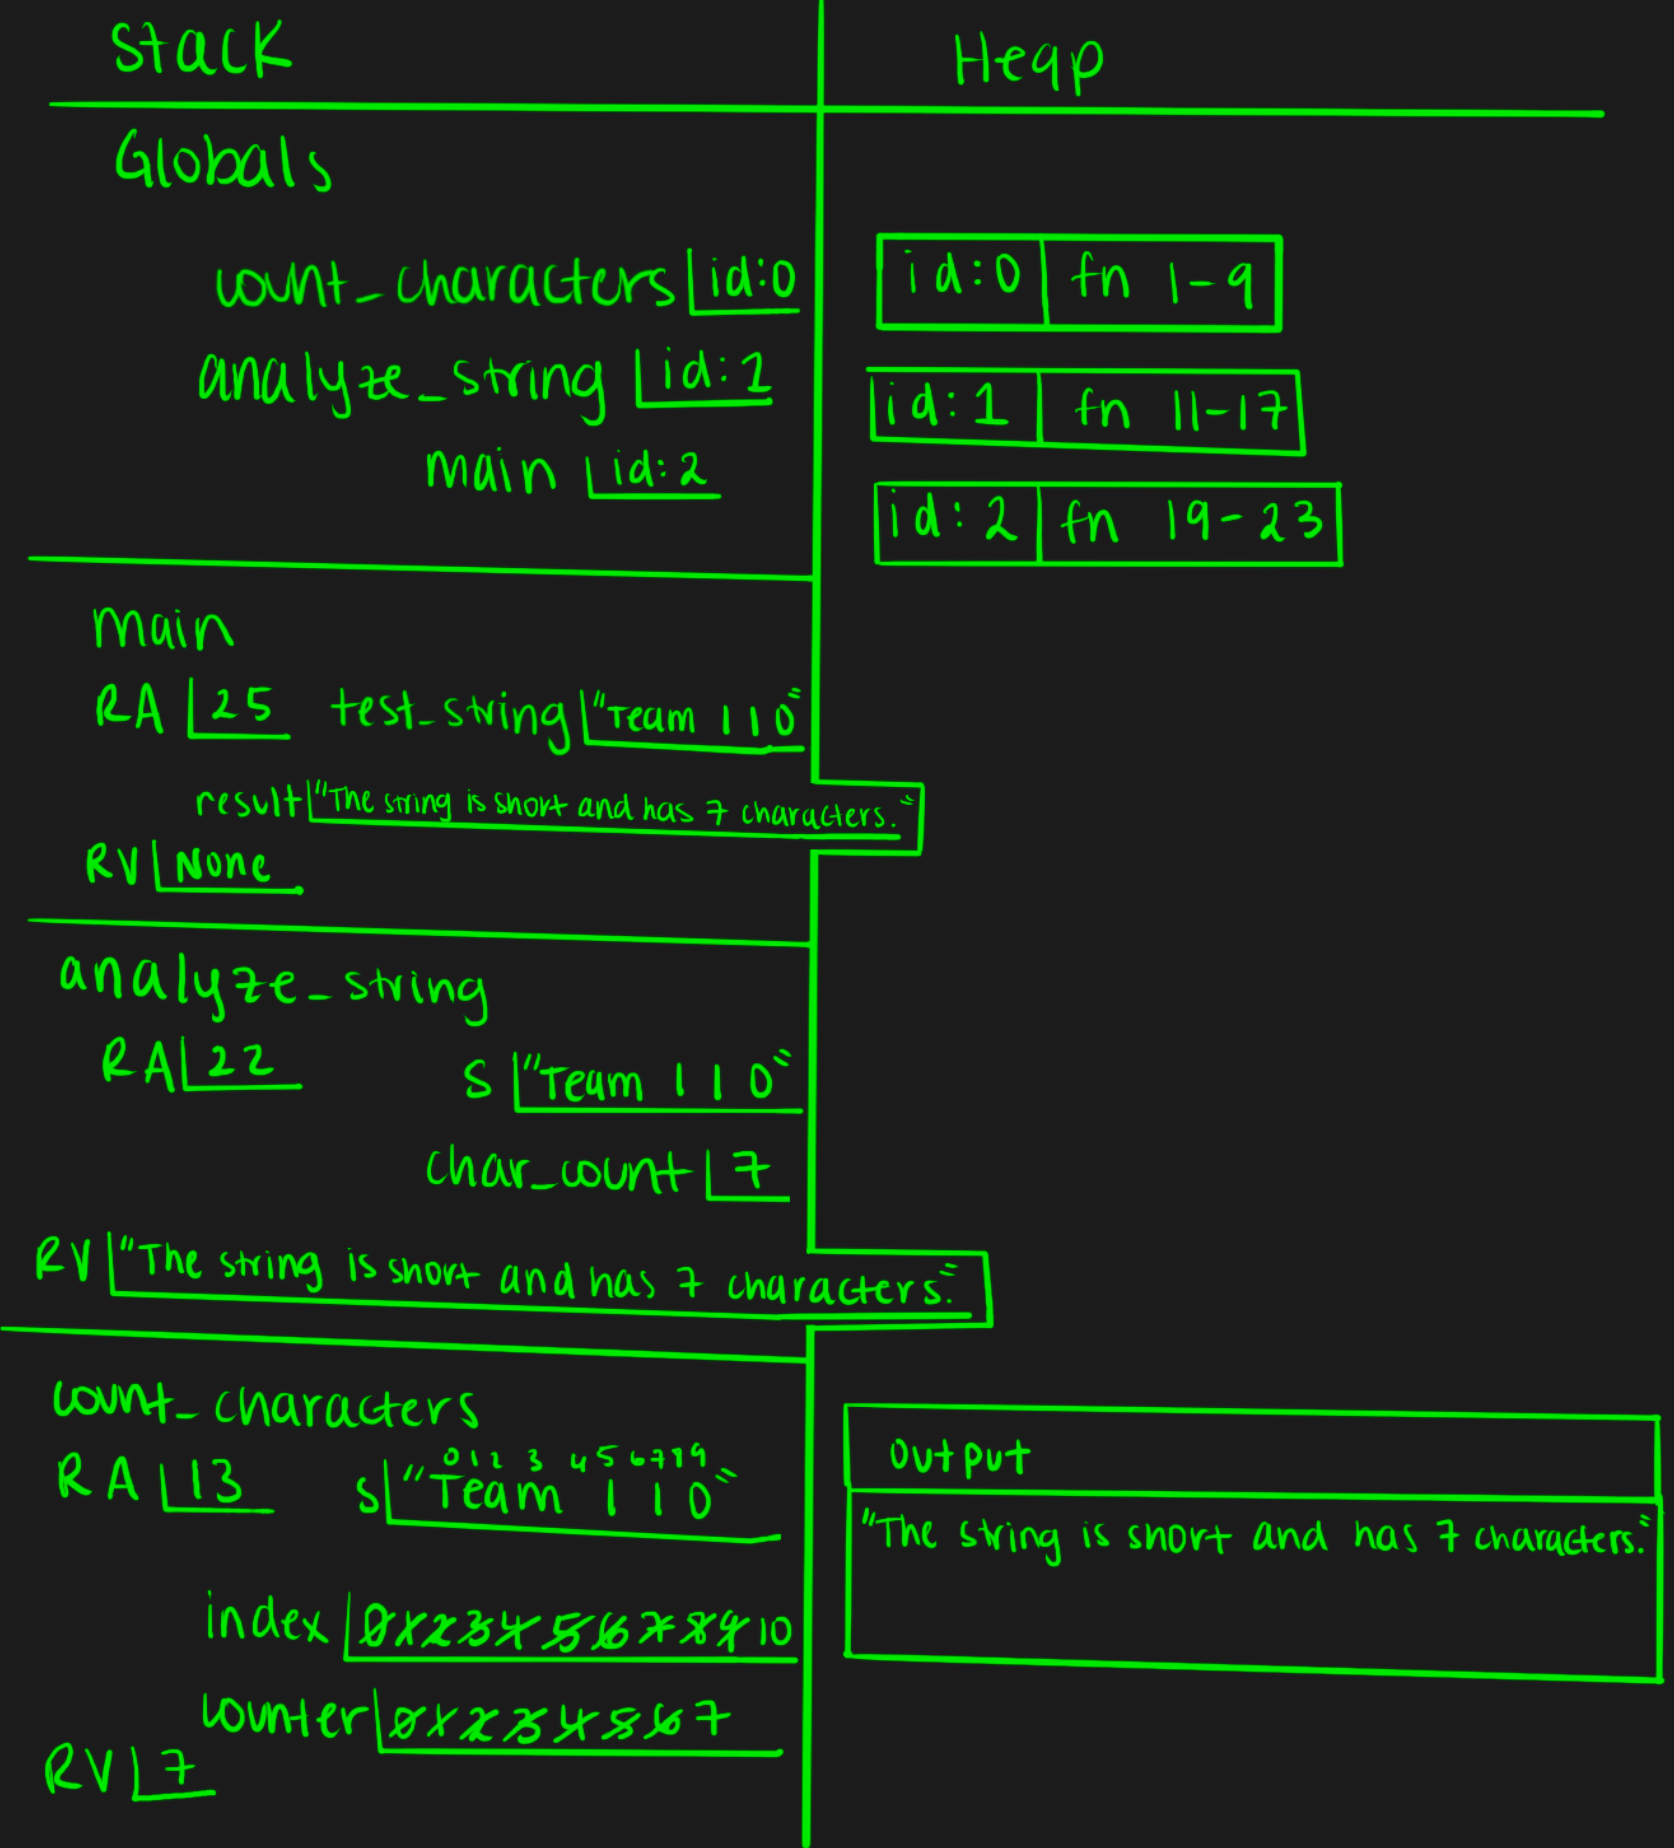 Stack
Heap
Globals
count_characters id:0
id:0 fn 1-9
analyze_string id:1
id:1 fn 11-17
main id:2
id:2 fn 19-23
main
RA 25 test_string "Team 1 1 0"
result "The string is short and has 7 characters."
RV None
analyze_string
RA 22 s "Team 1 1 0"
char_count 7
RV "The string is short and has 7 characters."
count_characters
0 1 2 3 4 5 6 7 8 9
RA 13 s "Team 1 1 0"
index 0 1 2 3 4 5 6 7 8 9 10
counter 0 1 2 3 4 5 6 7
RV 7
output
"The string is short and has 7 characters."